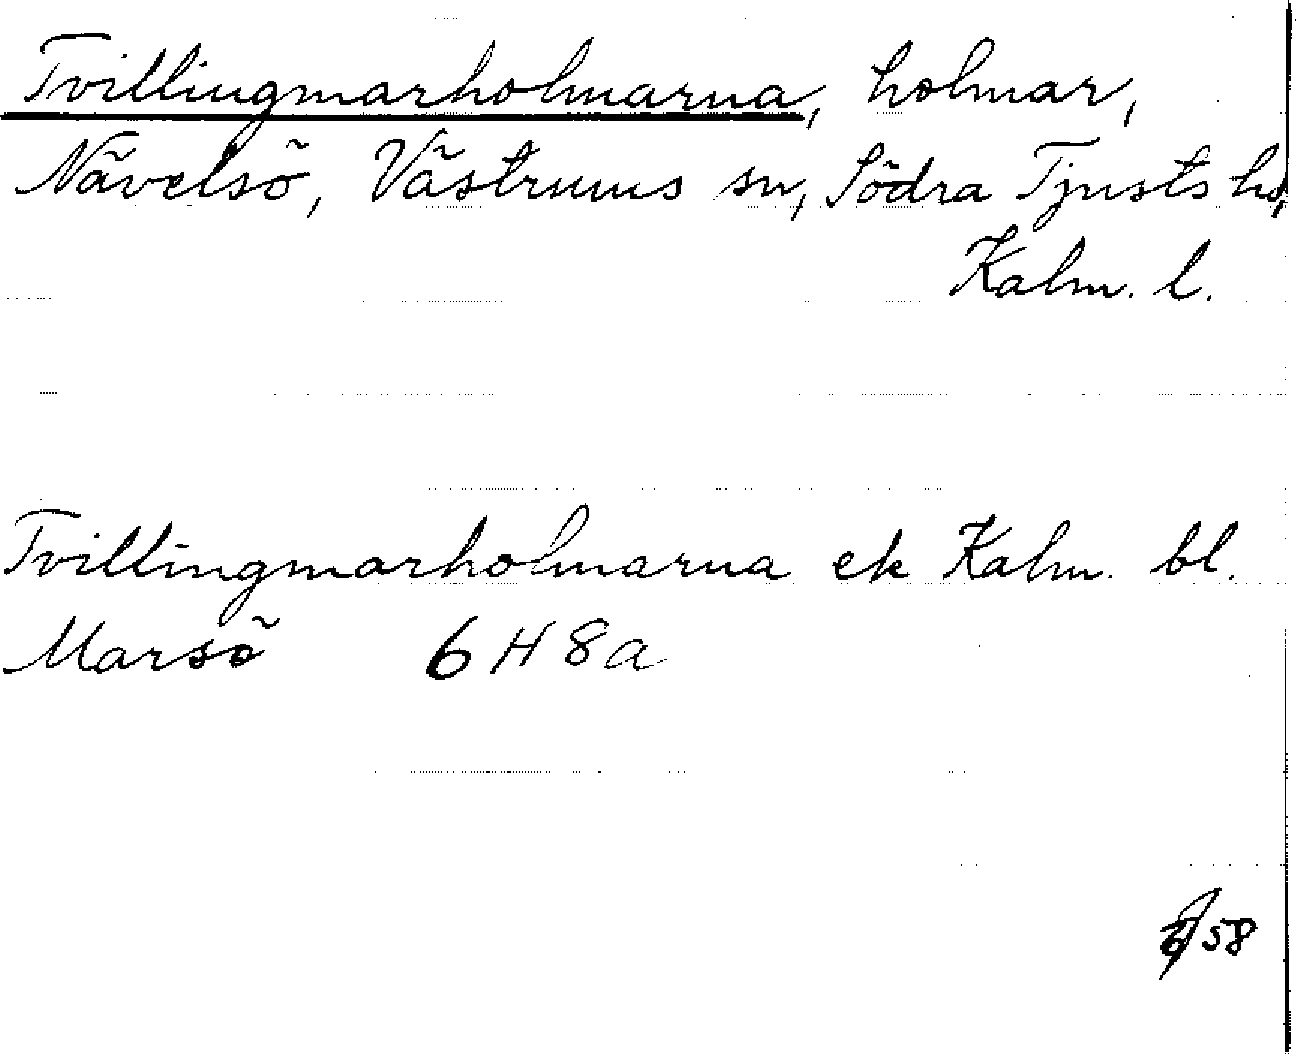 Tvillingmarholmarna, holmar,
Nävelsö, Västrums sn, Södra Tjusts hd,
Kalm. l.
Tvillingmarholmarna ek Kalm. bl.
Marsö 6 H 8a
58